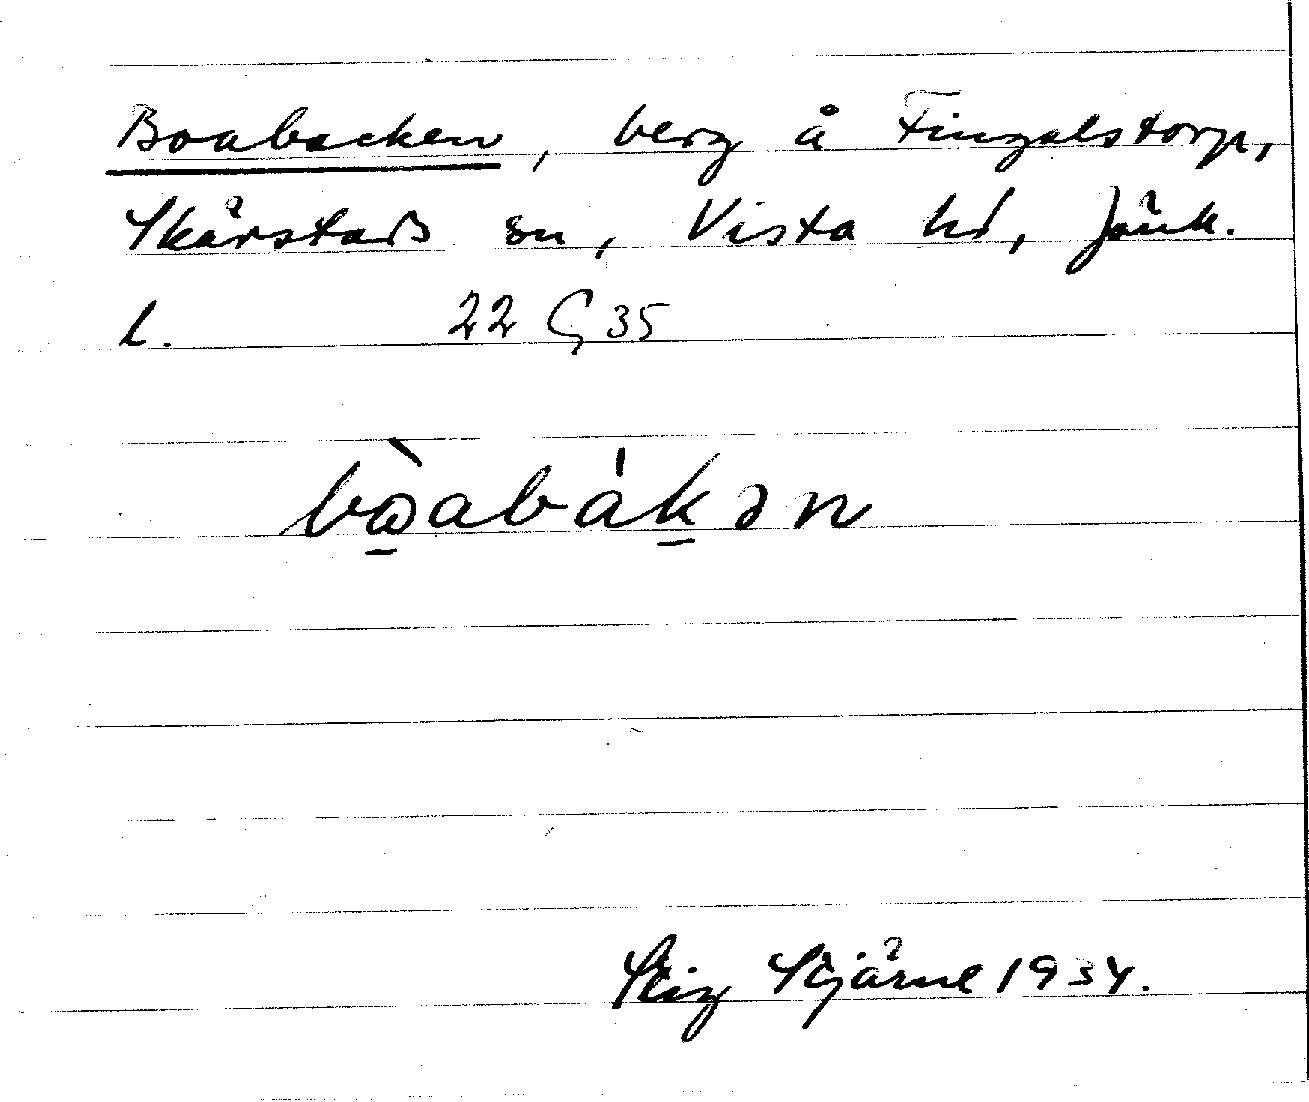 Boabacken, berg å Fingalstorp,
Skärstads sn, Vista hd, Jönk.
l. 22 G 35
bɷ̠̀abák̠ən
Stig Stjärne 1934.